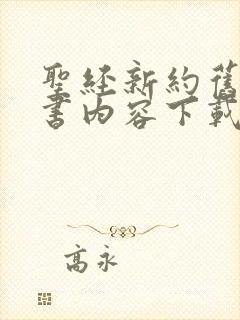 聖經新約舊
書內容下載
高永